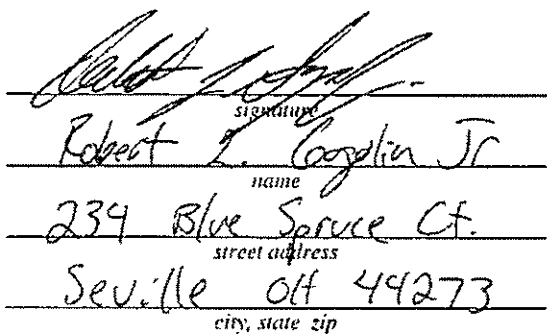 signature
Robert L. Gogolin Jr
name
234 Blue Spruce Ct.
street address
Seville OH 44273
city, state zip